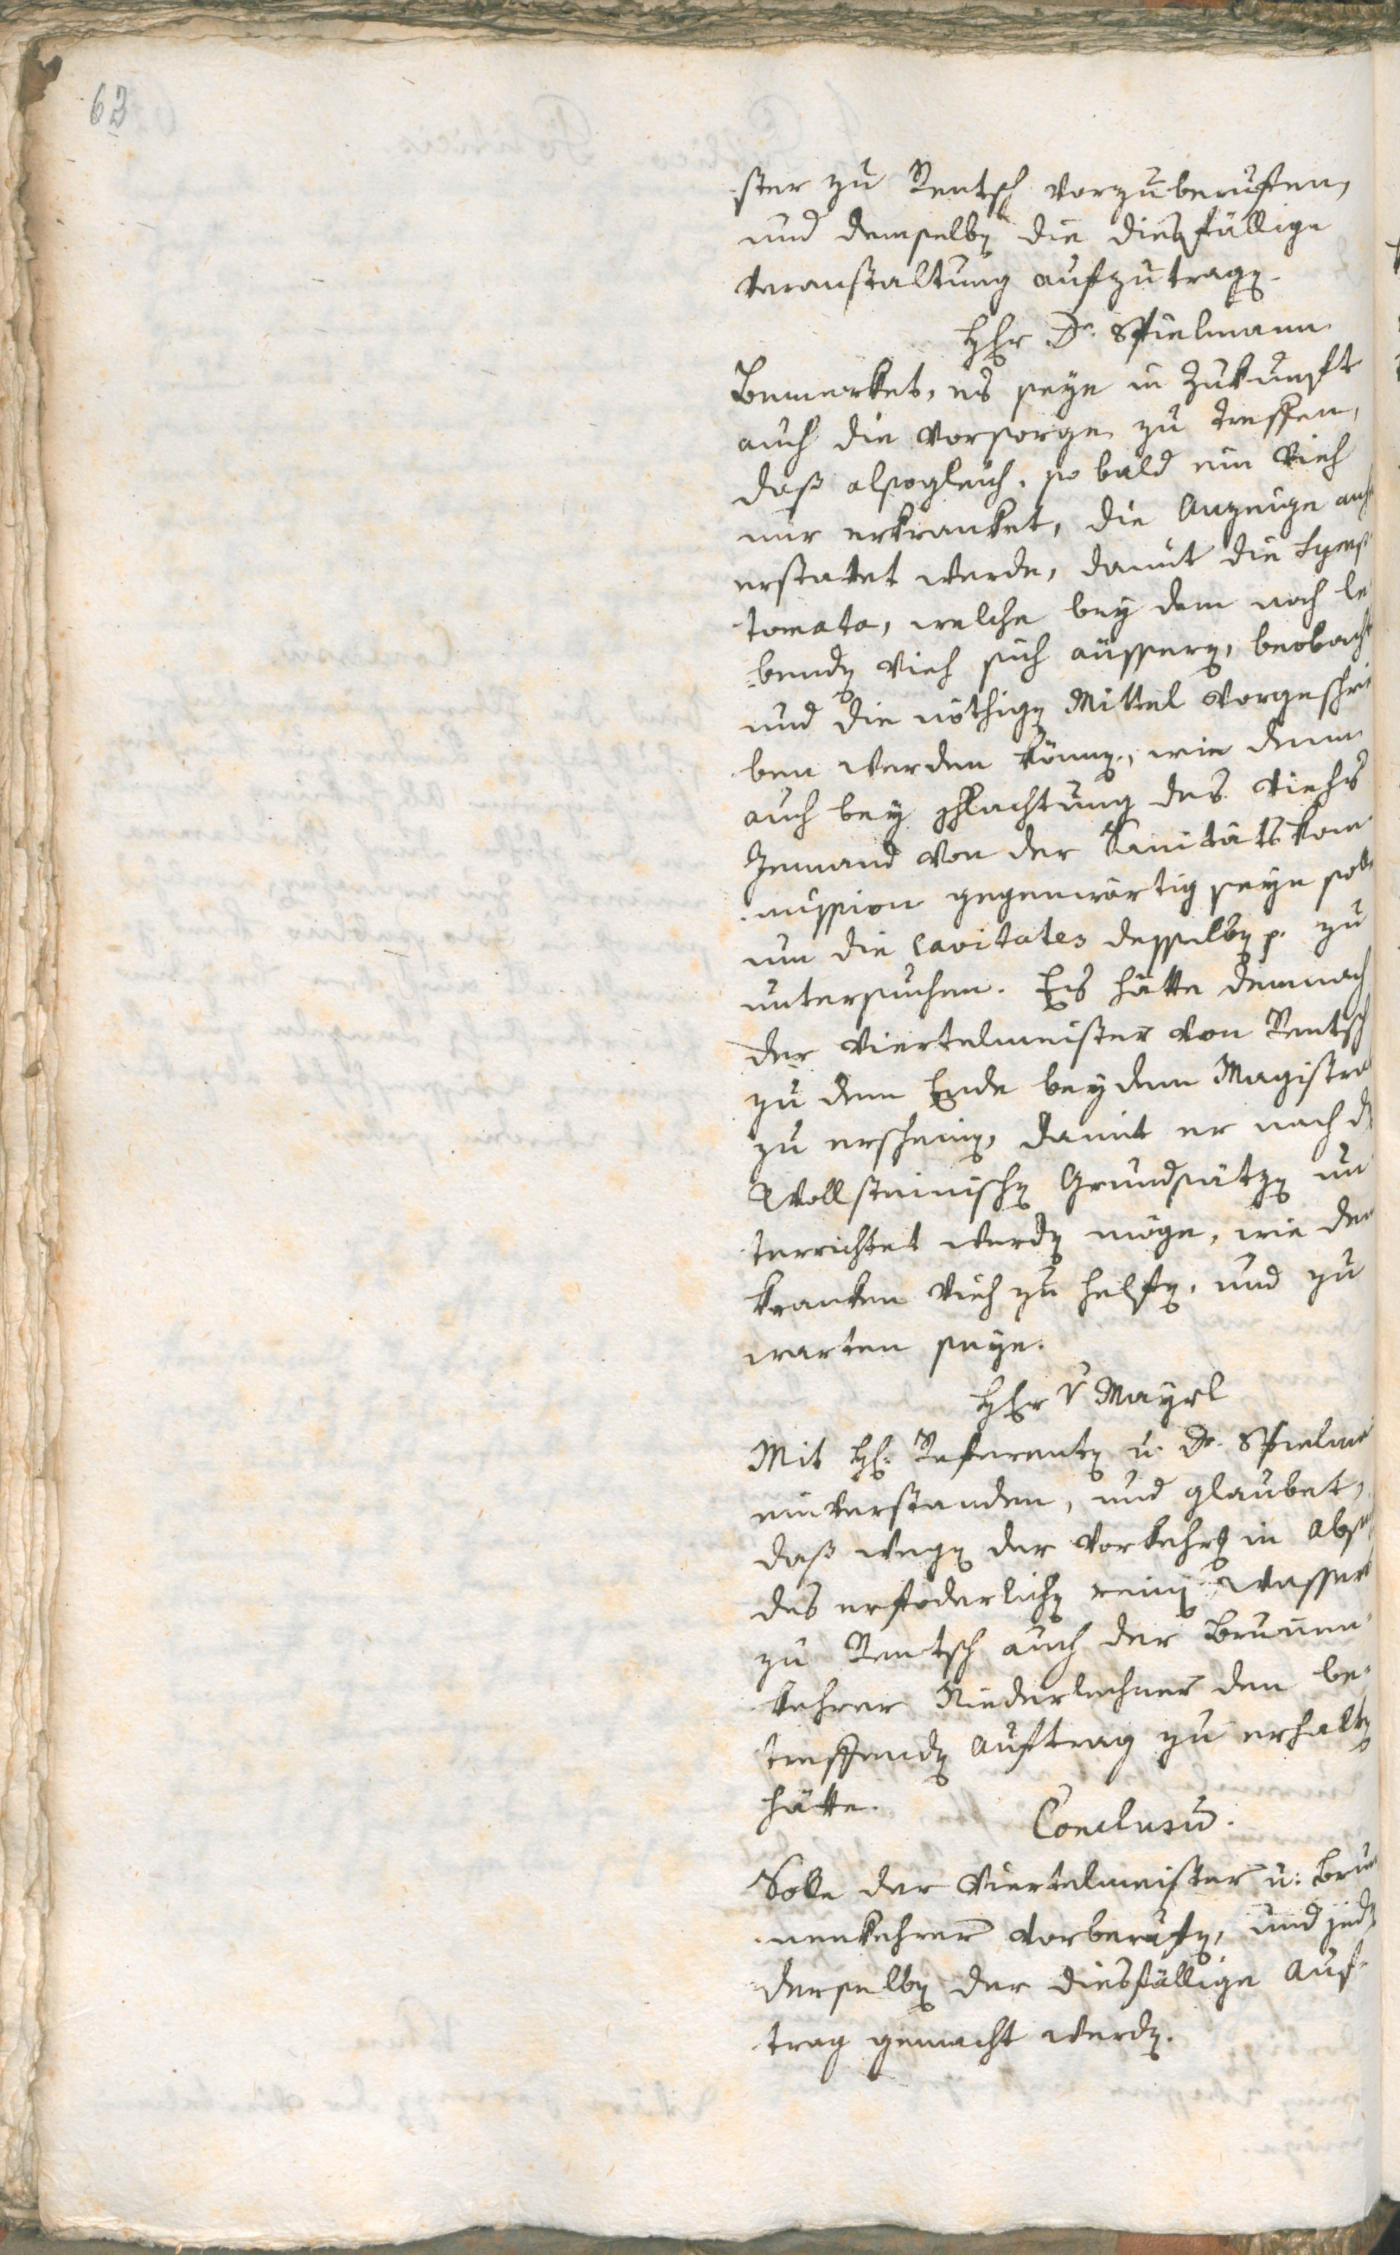 63
ster zu Rentsch vorzuberuffen,
und demselben die diesfällige
Veranstaltung aufzutragen.
HEr Dr. Spielmann
Bemerket, es seye in Zukunft
auch die Vorsorge zu treffen,
daß alsogleich, so bald ein Vieh
nur erkranket, die Anzeige auch
erstatet werde, damit die Symp
tomata, welche bey dem noch le
benden Vieh sich äussern, beobacht
und die nöthigen Mittel vorgeschrie
ben werden können, wie denn
auch bey Schlachtung des Viehs
Jemand von der Sanitätskom
mission gegenwärtig seyn solle
um die cavitates desselben p. zu
untersuchen. Es hätte demnach
der Viertelmeister von Rentsch
zu dem Ende bey dem Magistrat
zu erscheinen, damit er nach d
Wollsteinischen Grundsätzen un
terrichtet werden möge, wie dem
kranken Vieh zu helfen, und zu
warten seye.
HEr v Mayrl
Mit H. Referenten u. Dr. Spielma
einverstanden, und glaubet,
daß wegen der Vorkehrg in Abs
des erfoderlichen reinen Wassers
zu Rentsch auch der Brunnen
kehrer Niederlechner den be-
treffenden Auftrag zu erhalten
hätte.
Conclusū.
Solle der Viertelmeister u: Brun
nenkehrer vorberufen, und jeden
derselben der diesfällige Auf-
trag gemacht werden.